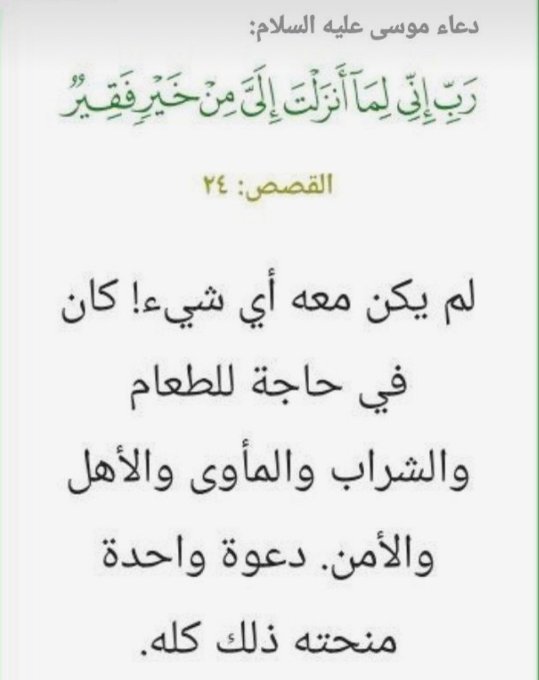 دعاء موسى عليه السلام:
رَبِّ إِنِّي لِمَا أَنزَلْتَ إِلَيَّ مِنْ خَيْرٍ فَقِيرٌ
القصص: ٢٤
لم يكن معه أي شيء! كان
في حاجة للطعام
والشراب والمأوى والأهل
والأمن. دعوة واحدة
منحته ذلك كله.